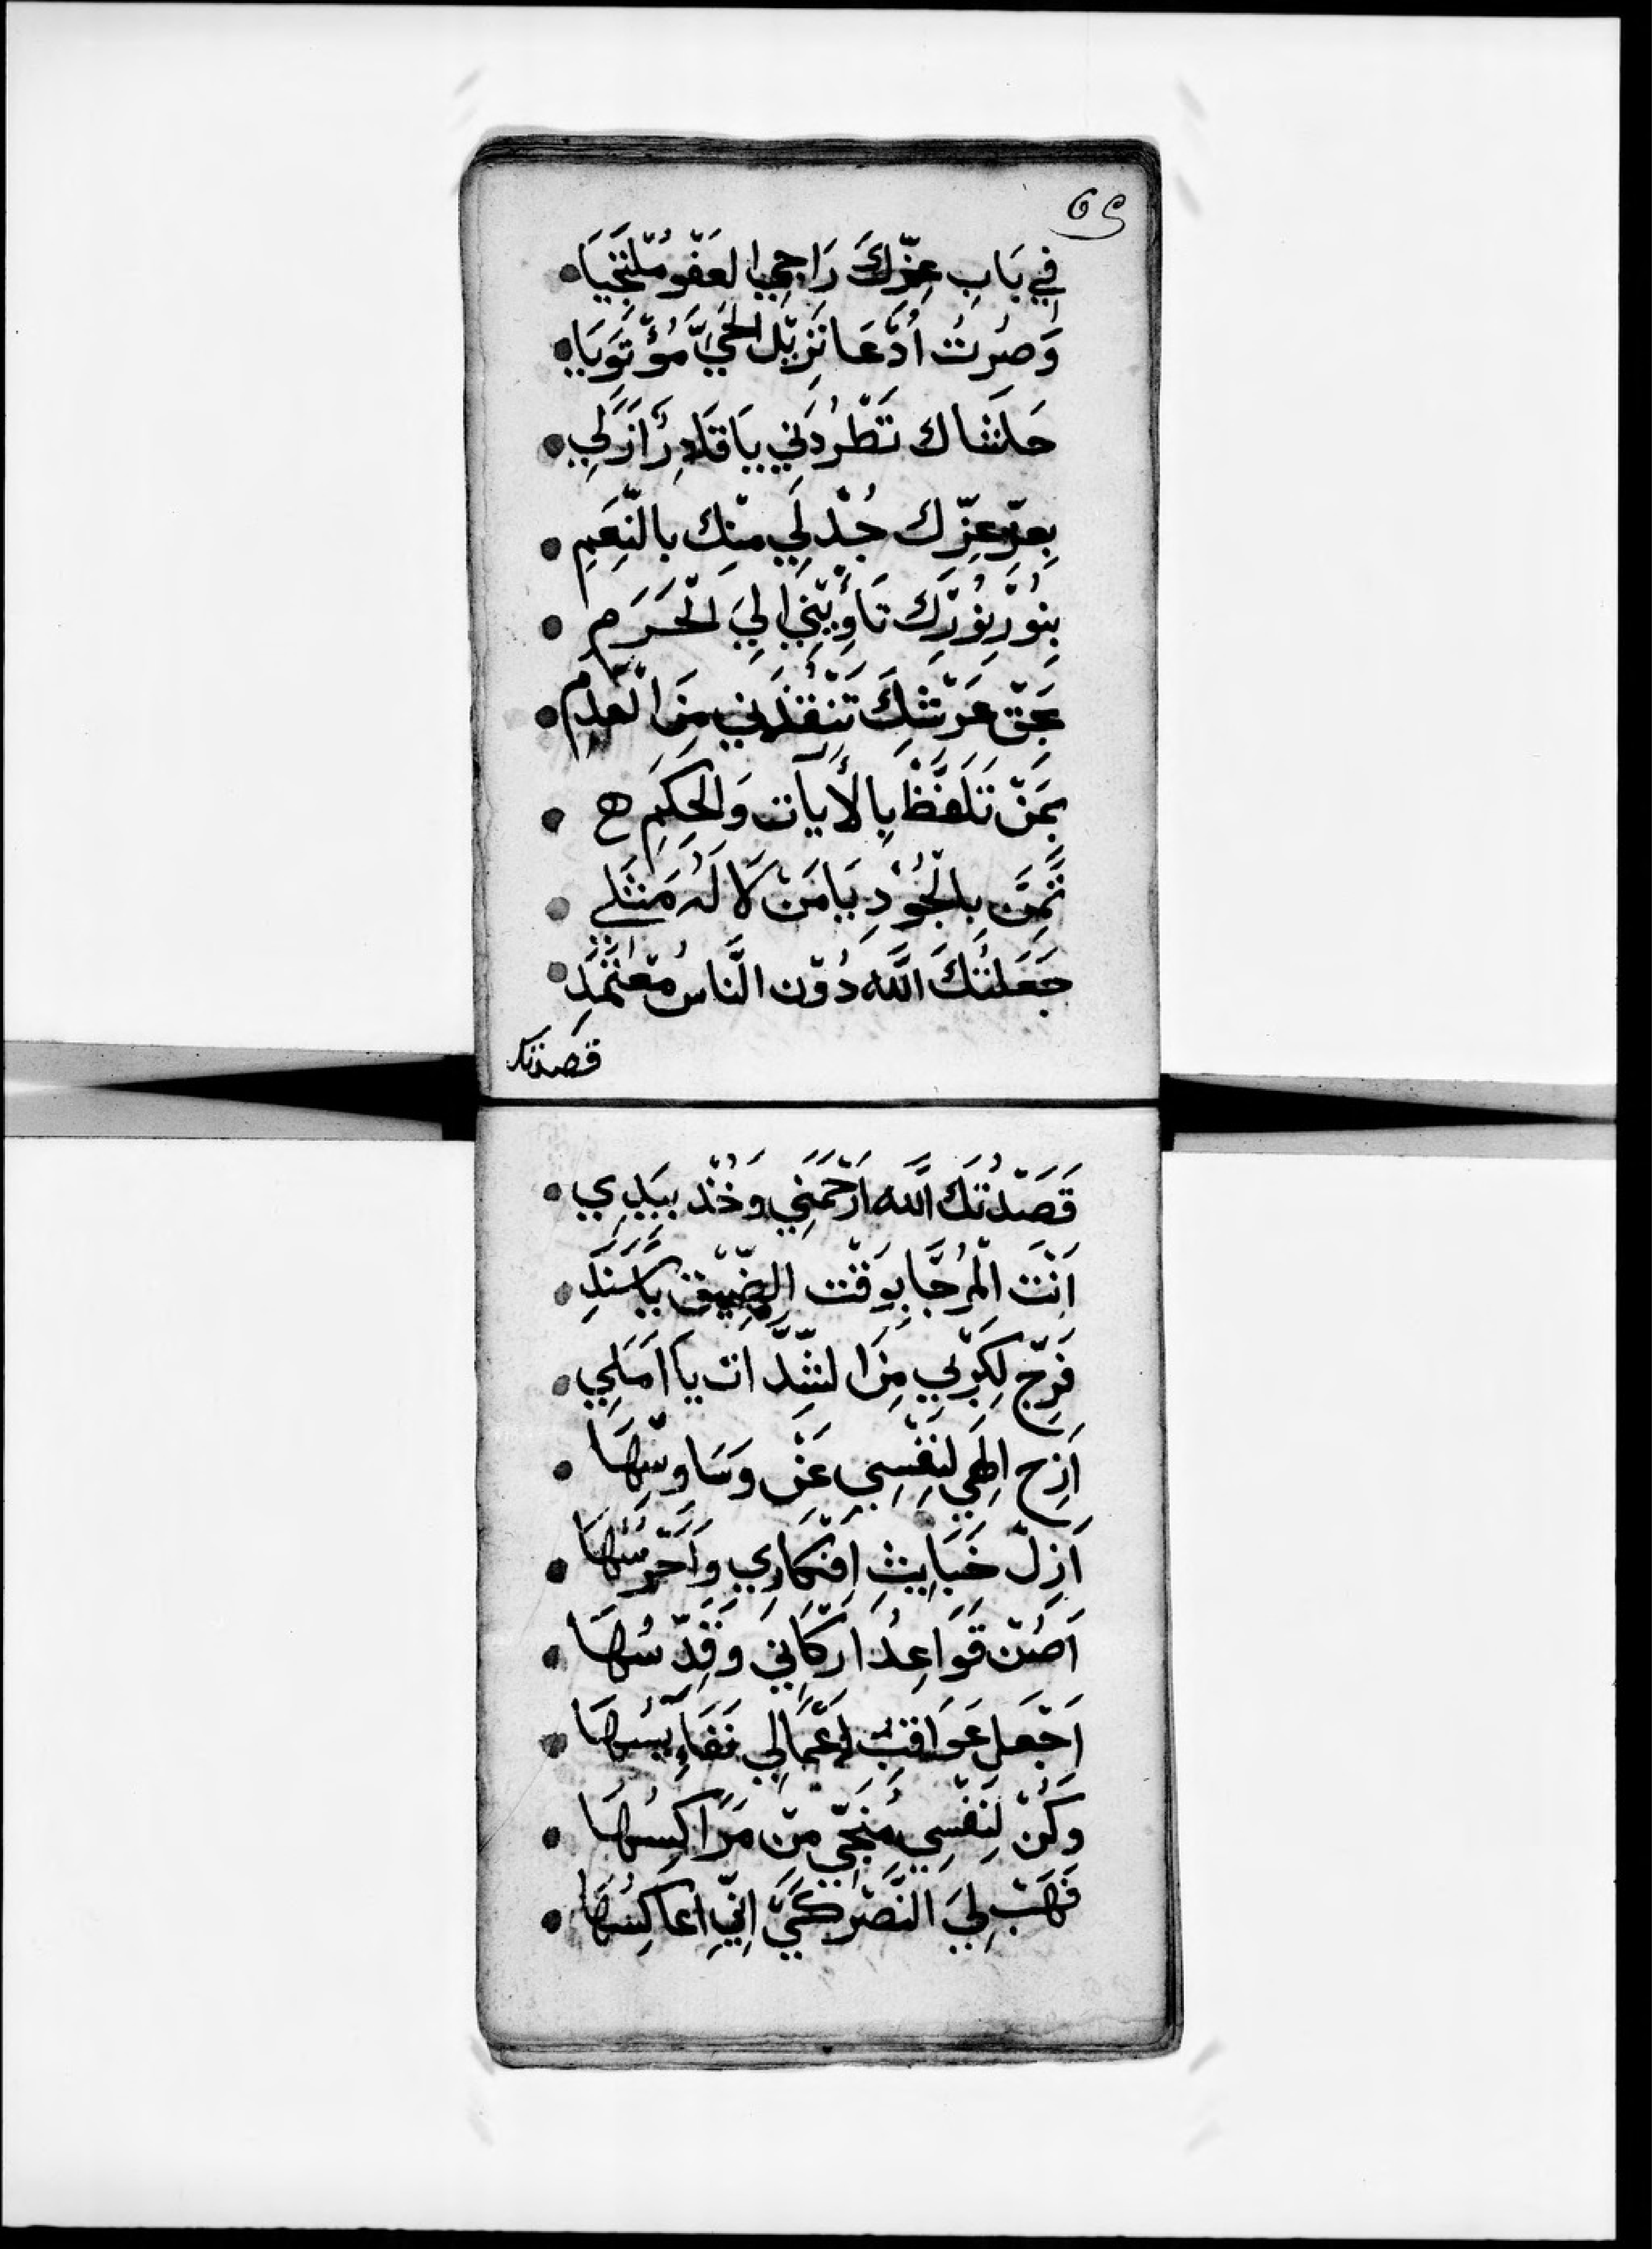 69
في بَابِ عِزِّكَ رَاجِي العَفْو مُلْتَجِيَا
وَصِرْتُ أُدْعَا نَزِيْلَ الحَيِّ مُؤْتَوِيَا
حَاشاك تَطْرُدَنِي يَا قَادِرُ أَزَلِي
بِعِزِّ عِزِّك جُدْ لِي مِنْكَ بالنِّعَمِ
بِنُوْرِ نُوْرِكَ تَأْوِيْنِي الِيَ الْحَرَمِ
بحَقِّ عَرْشِكَ تَنْقُذَنِي مِنَ الْعَدَمِ
بمَنْ تَلَفَّظْ بِالأَيَآت وَالحِكَمِ ح
تُمِنَّ بِالْجُوْدِ يَا مَنْ لَا لَهُ مَثَلِ
جَعَلْتُكَ اللَّه دُوْن النَّاس مُعْتَمَدِ
قصدتك
قَصَدْتُكَ اللَّه ارْحَمْنِي وَخُذْ بِيَدِي
اَنْتَ الْمُرَجَّا بِوَقْت الضِّيْق يَا سَنَدِ
فَرِّج لِكَرْبِي مِنَ الشِّدَّات يَا اَمَلِي
اَزِح اِلهِي لِنَفْسِي عَنْ وَسَاوِسِهَا
اَزِلْ خَبَايِثِ افْكَارِي وَاَحْرُسُهَا
اَصُنْ قَوَاعِدُ ارْكَانِي وَقَدِّسُهَا
اَجْعَل عَوَاقِبُ اِعْمَالِي نَفَآيِسُهَا
وَكُنْ لِنَفْسِي مُنَجِّي مِنْ مَرَاكِسُهَا
فَهَبْ لِيَ النَّصْر كَيَّ اِنِّي اُعَاكِسُهَا